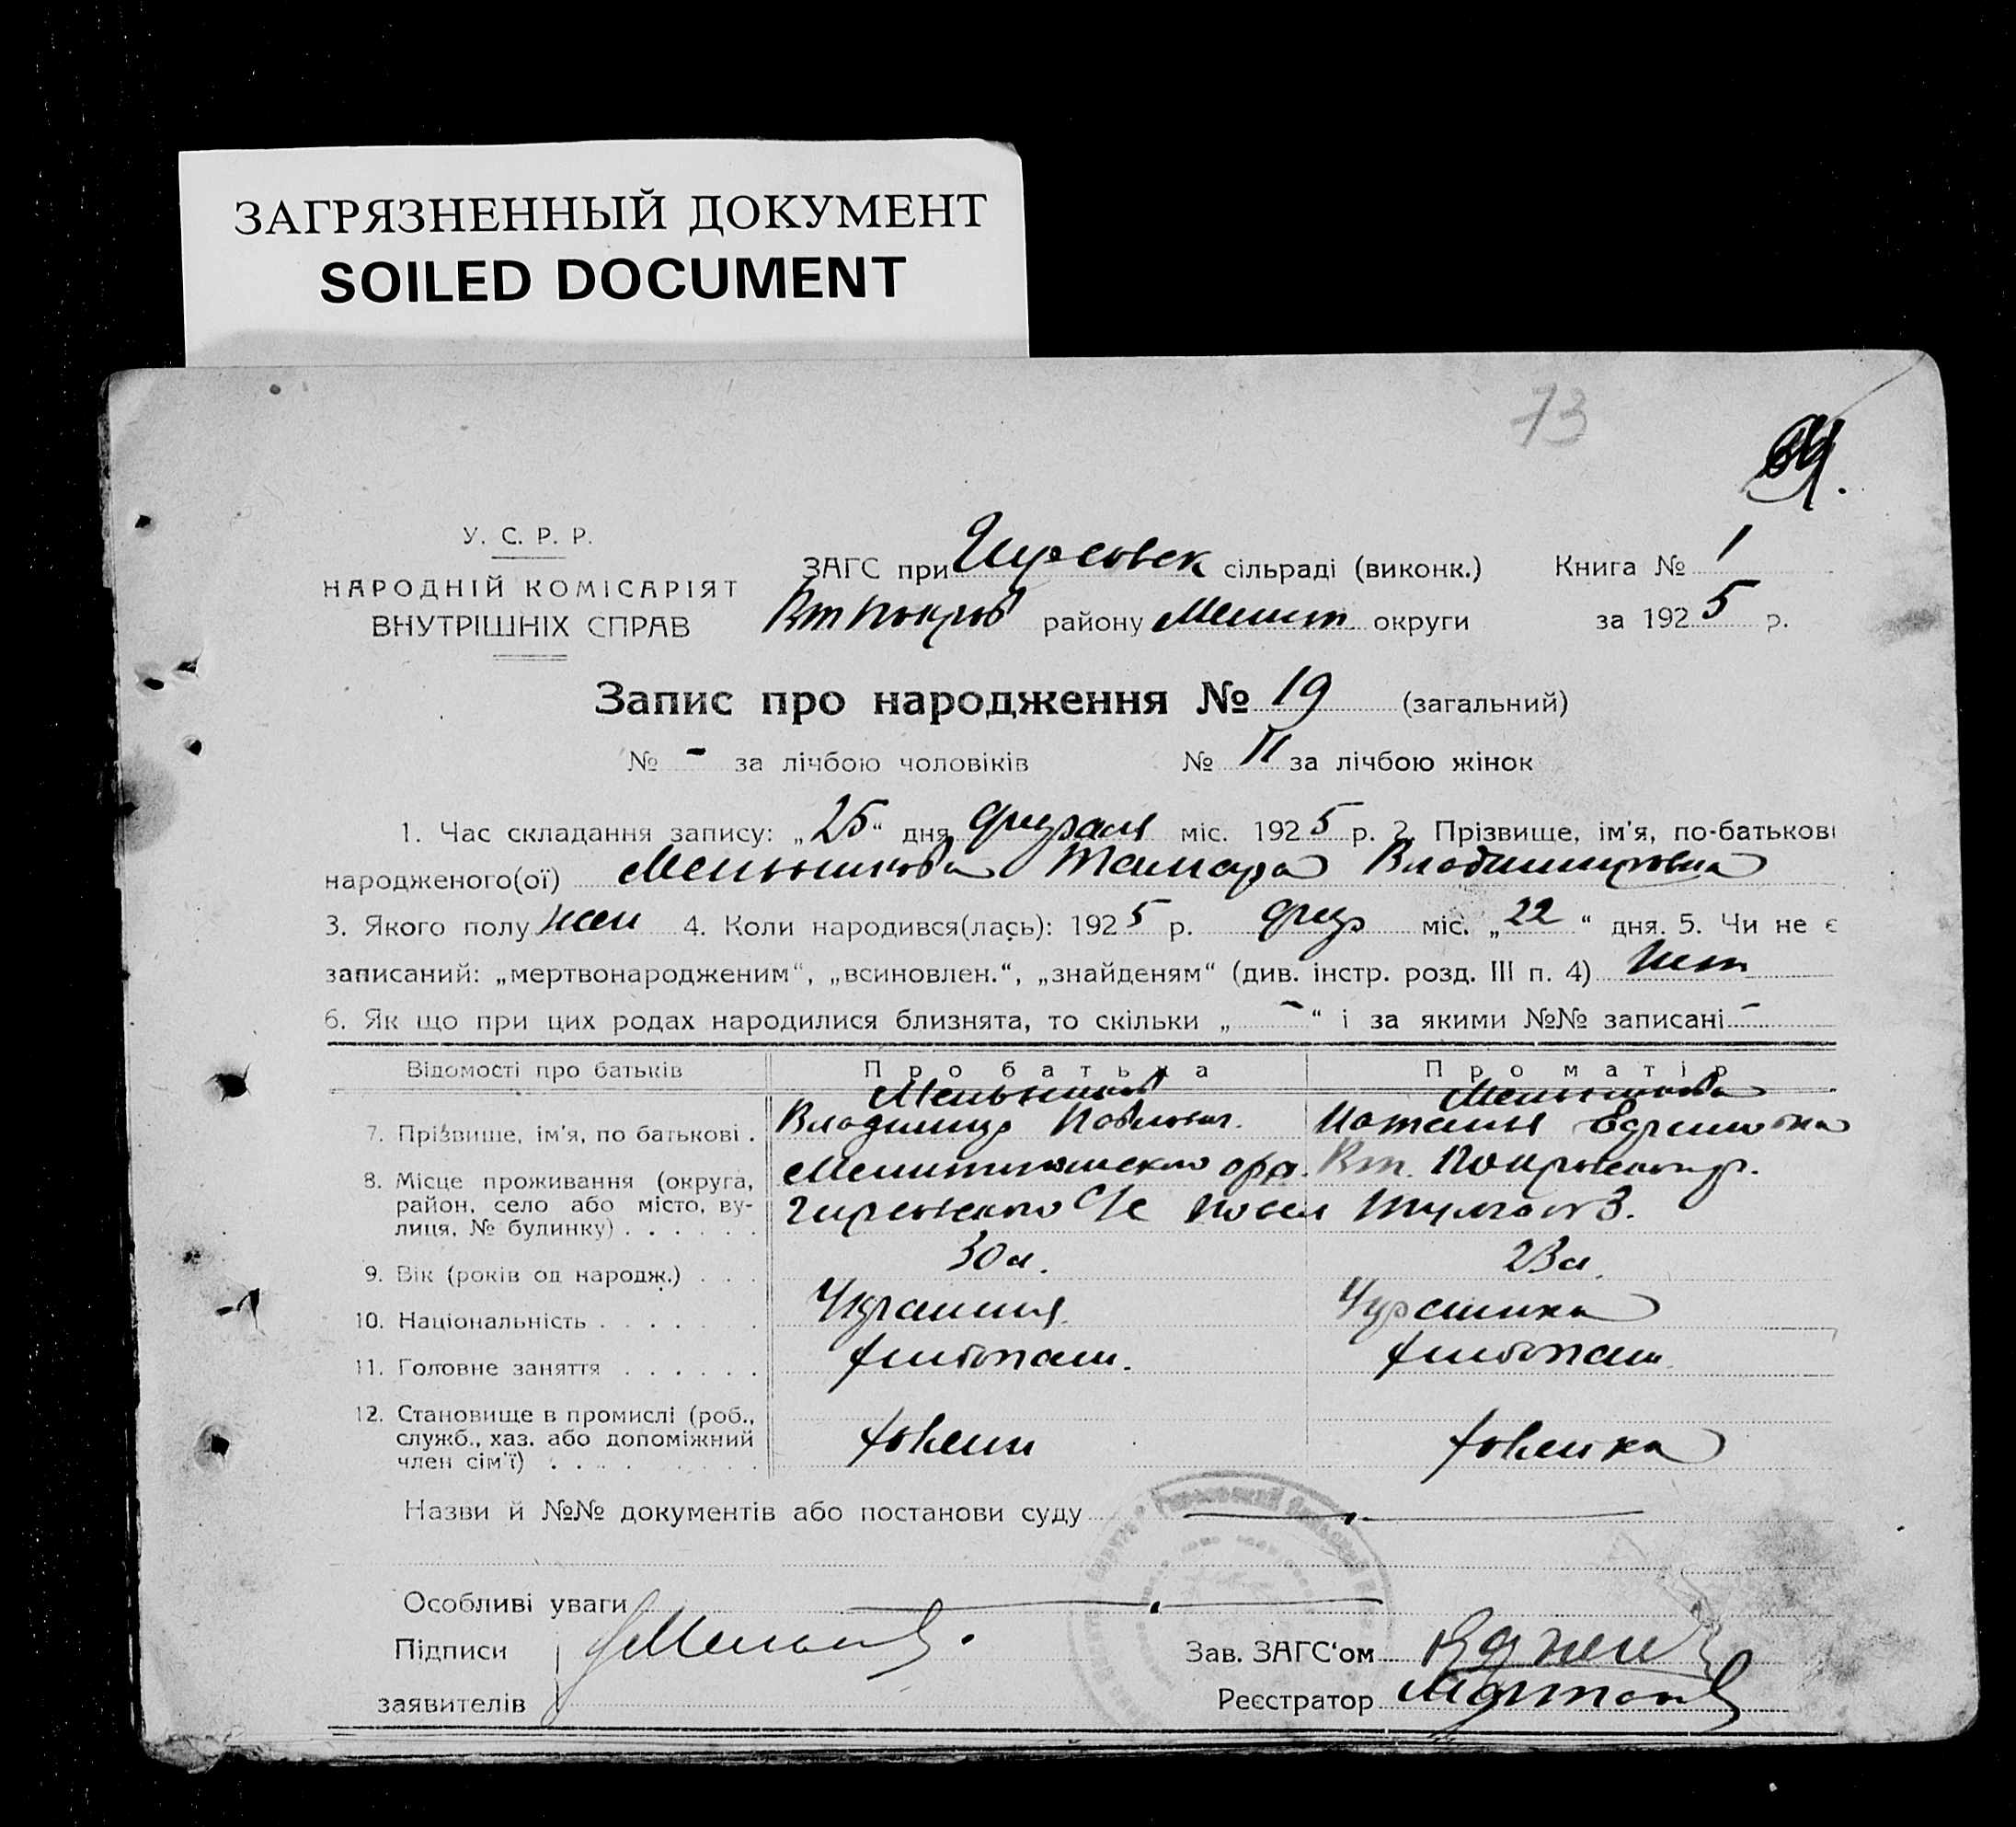 ЗАГРЯЗНЕННЫЙ ДОКУМЕНТ
SOILED DOCUMENT
73
У. С. Р. Р.
НАРОДНІЙ КОМІСАРІЯТ
ВНУТРІШНІХ СПРАВ
ЗАГС при сільраді (виконк.)
району Мелит округи
Книга № 1
за 1925 р.
Запис про народження № 19 (загальний)
№ - за лічбою чоловіків № 11 за лічбою жінок
1. Час складання запису: „25“ дня февраля міс. 1925 р. 2. Прізвище, ім'я, по-батькові
народженого(ої) Меньшикова Тамара Владимировна
3. Якого полу жен 4. Коли народився(лась): 1925 р. февр міс. „22“ дня. 5. Чи не є
записаний: „мертвонародженим“, „всиновлен.“, „знайденям“ (див. інстр. розд. III п. 4) Нет
6. Як що при цих родах народилися близнята, то скільки „-“ і за якими №№ записані -
Відомості про батьків Про батька Про матір
Меньшиков Меньшикова
7. Прізвище, ім'я, по батькові . Владимир Павлович. Наталья Ефимовна
8. Місце проживання (округа, Мелитопольского окр. Вт. Покровского р.
район, село або місто, ву-
лиця, № будинку) . . . . . . с/с
9. Вік (років од народж.) . . . 30 л. 23 л.
10. Національність . . . . . . . Украинец Украинка
11. Головне заняття . . . . . . хлебопаш. хлебопаш.
12. Становище в промислі (роб.,
служб., хаз. або допоміжний хозяин хозяйка
член сім'ї) . . . . . . . . .
Назви й №№ документів або постанови суду
Особливі уваги
Підписи
заявителів
Зав. ЗАГС'ом
Реєстратор